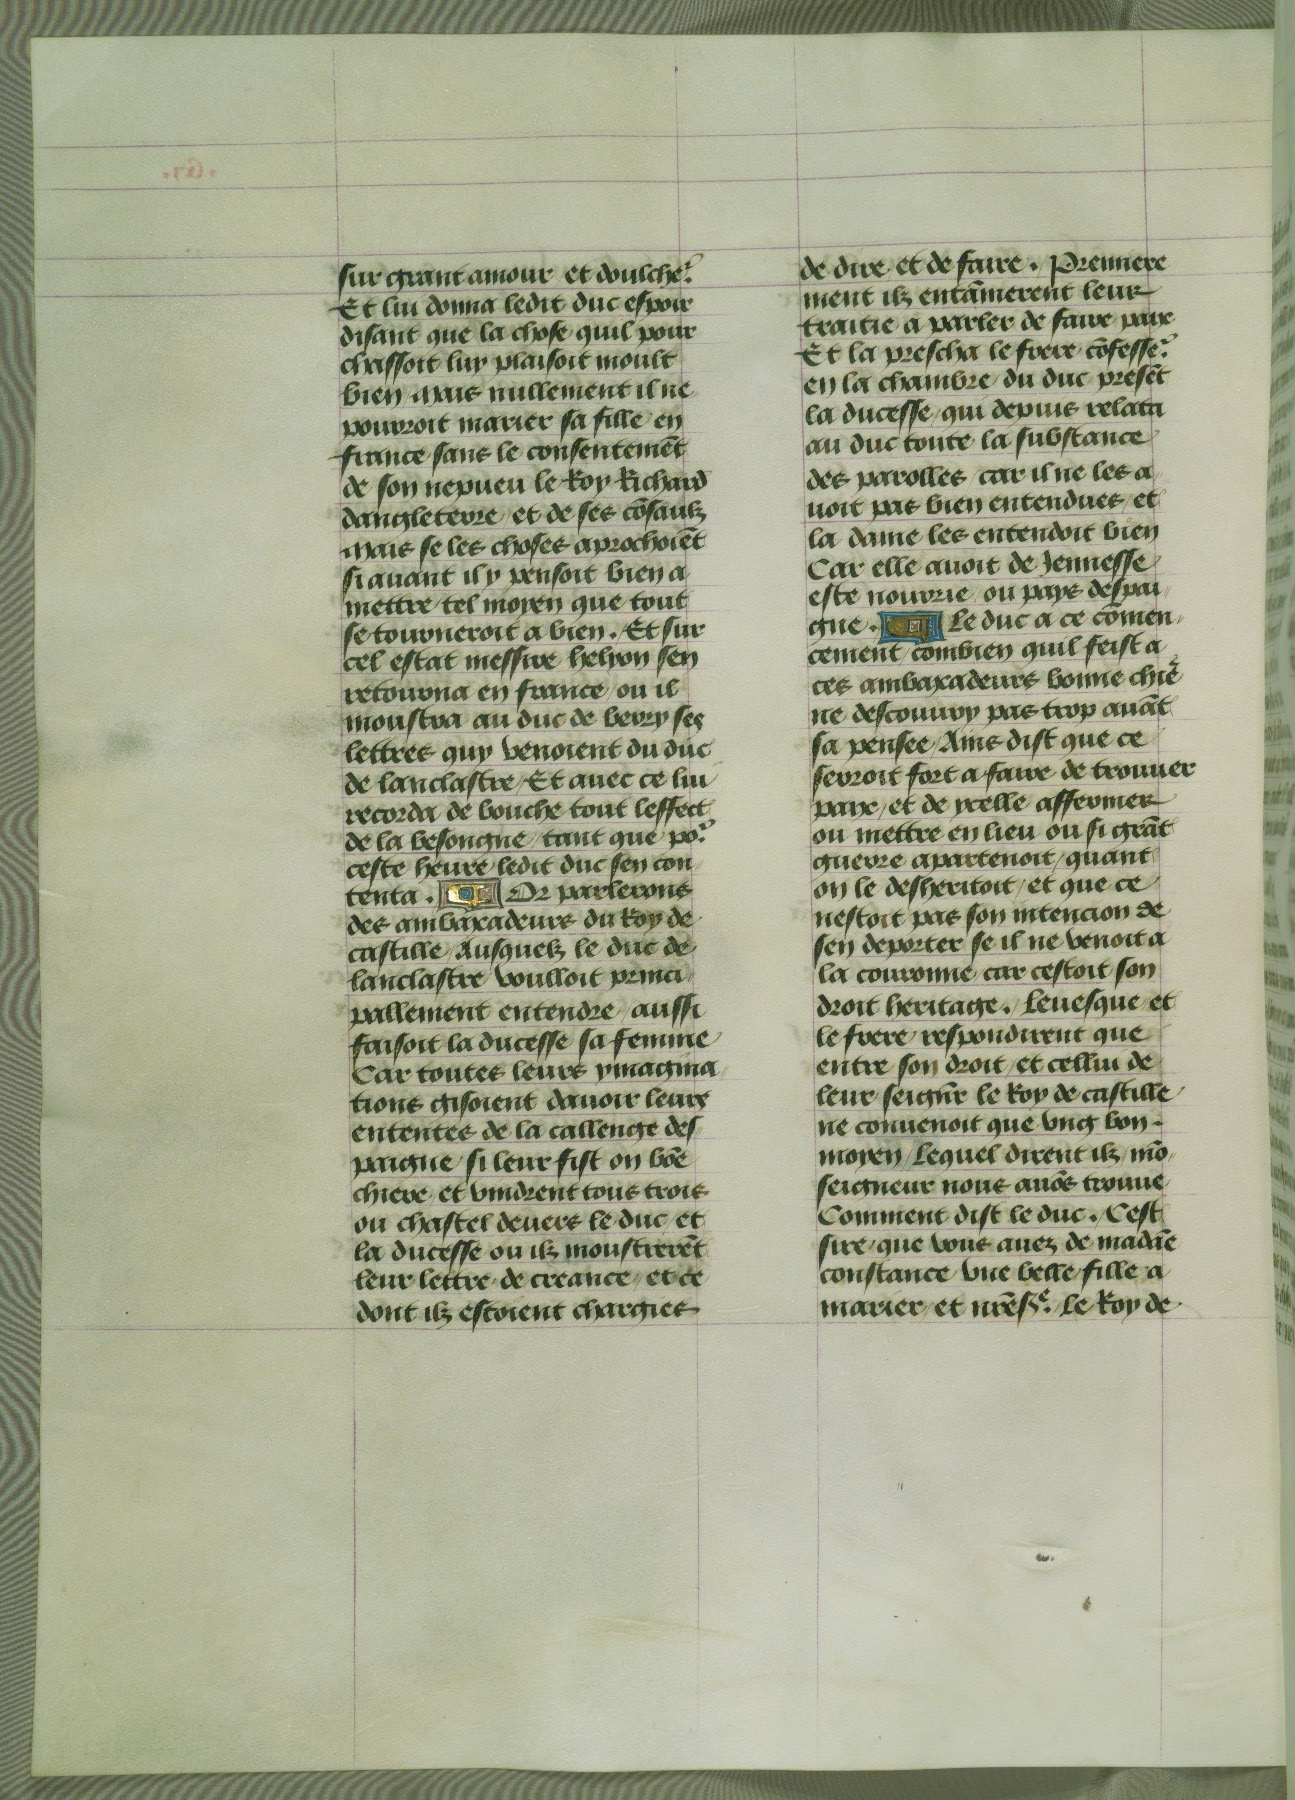 sur grant amour et doulche͛
Et lui donna ledit duc espoir
disant que la chose quil pour
chassoit luy plaisoit moult
bien Mais nullement il ne
pourroit marier sa fille en
france sans le consentemēt
de son nepueu le Roy Richard
dangleterre et de ses cōsaulz
Mais se les choses aprochoiēt
si auant il y pensoit bien a
mettre tel moyen que tout
se tourneroit a bien. Et sur
cel estat messire helyon sen
retourna en france ou il
moustra au duc de berry ses
lettres quy venoient du duc
de lanclastre / Et auec ce lui
recorda de bouche tout leffect
de la besongne / tant que po͛
ceste heure ledit duc sen con
tenta. Or parlerons
des ambaxadeurs du Roy de
castille / Ausquelz le duc de
lanclastre voulloit princi
pallement entendre / aussi
faisoit la ducesse sa femme
Car toutes leurs ymagina
tions gisoient dauoir leurs
ententes de la callenge des
paigne / si leur fist on bōe
chiere / et vindrent tous trois
ou chastel deuers le duc et
la ducesse ou ilz moustrerēt
leur lettre de creance / et ce
dont ilz estoient chargies
de dire et de faire. Premiere
ment ilz entāmerent leur
traitie a parler de faire paix
Et la prescha le frere cōfesse͛
en la chambre du duc presēt
la ducesse / qui depuis relata
au duc toute la substance
des parolles / car il ne les a
uoit pas bien entendues / et
la dame les entendoit bien
Car elle auoit de Jennesse
este nourrie ou pays despai
gne. Le duc a ce cōmen
cement / combien quil feist a
ces ambaxadeurs bonne chie͛
ne descouury pas trop auāt
sa pensee / Ains dist que ce
serroit fort a faire de trouuer
paix / et de ycelle affermer
ou mettre en lieu ou si grāt
guerre apartenoit / quant
on le desheritoit / et que ce
nestoit pas son intencion de
sen deporter se il ne venoit a
la couronne / car cestoit son
droit heritage. Leuesque et
le frere respondirent que
entre son droit / et cellui de
leur seignr̄ le Roy de castille
ne conuenoit que vng bon
moyen / Lequel dirent ilz mō
seigneur nous auōs trouue
Comment dist le duc. Cest
sire / que vous auez de madāe
constance vne belle fille a
marier / et nr̄e sꝭ͛ Le Roy de